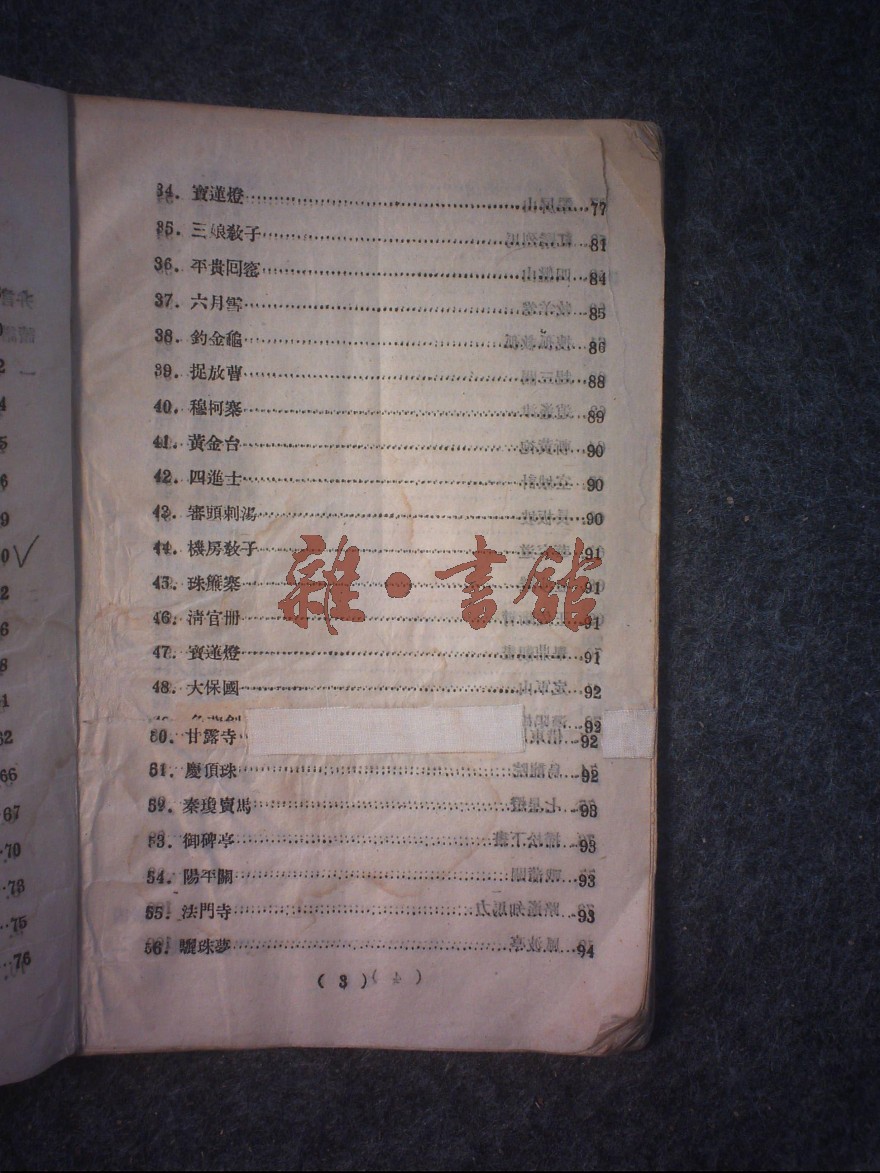 34. 寶蓮燈 77
35. 三娘教子 81
36. 平貴回窰 84
37. 六月雪 85
38. 釣金龜 86
39. 捉放曹 88
40. 穆柯寨 89
41. 黃金台 90
42. 四進士 90
43. 審頭刺湯 90
44. 機房教子 91
45. 珠簾寨 91
46. 淸官册 91
47. 寶蓮燈 91
48. 大保國 92
92
50. 甘露寺 92
51. 慶頂珠 92
52. 秦瓊賣馬 93
53. 御碑亭 93
54. 陽平關 93
55. 法門寺 93
56. 驪珠夢 94
( 3 )
62
66
67
70
73
75
76
雜·書館